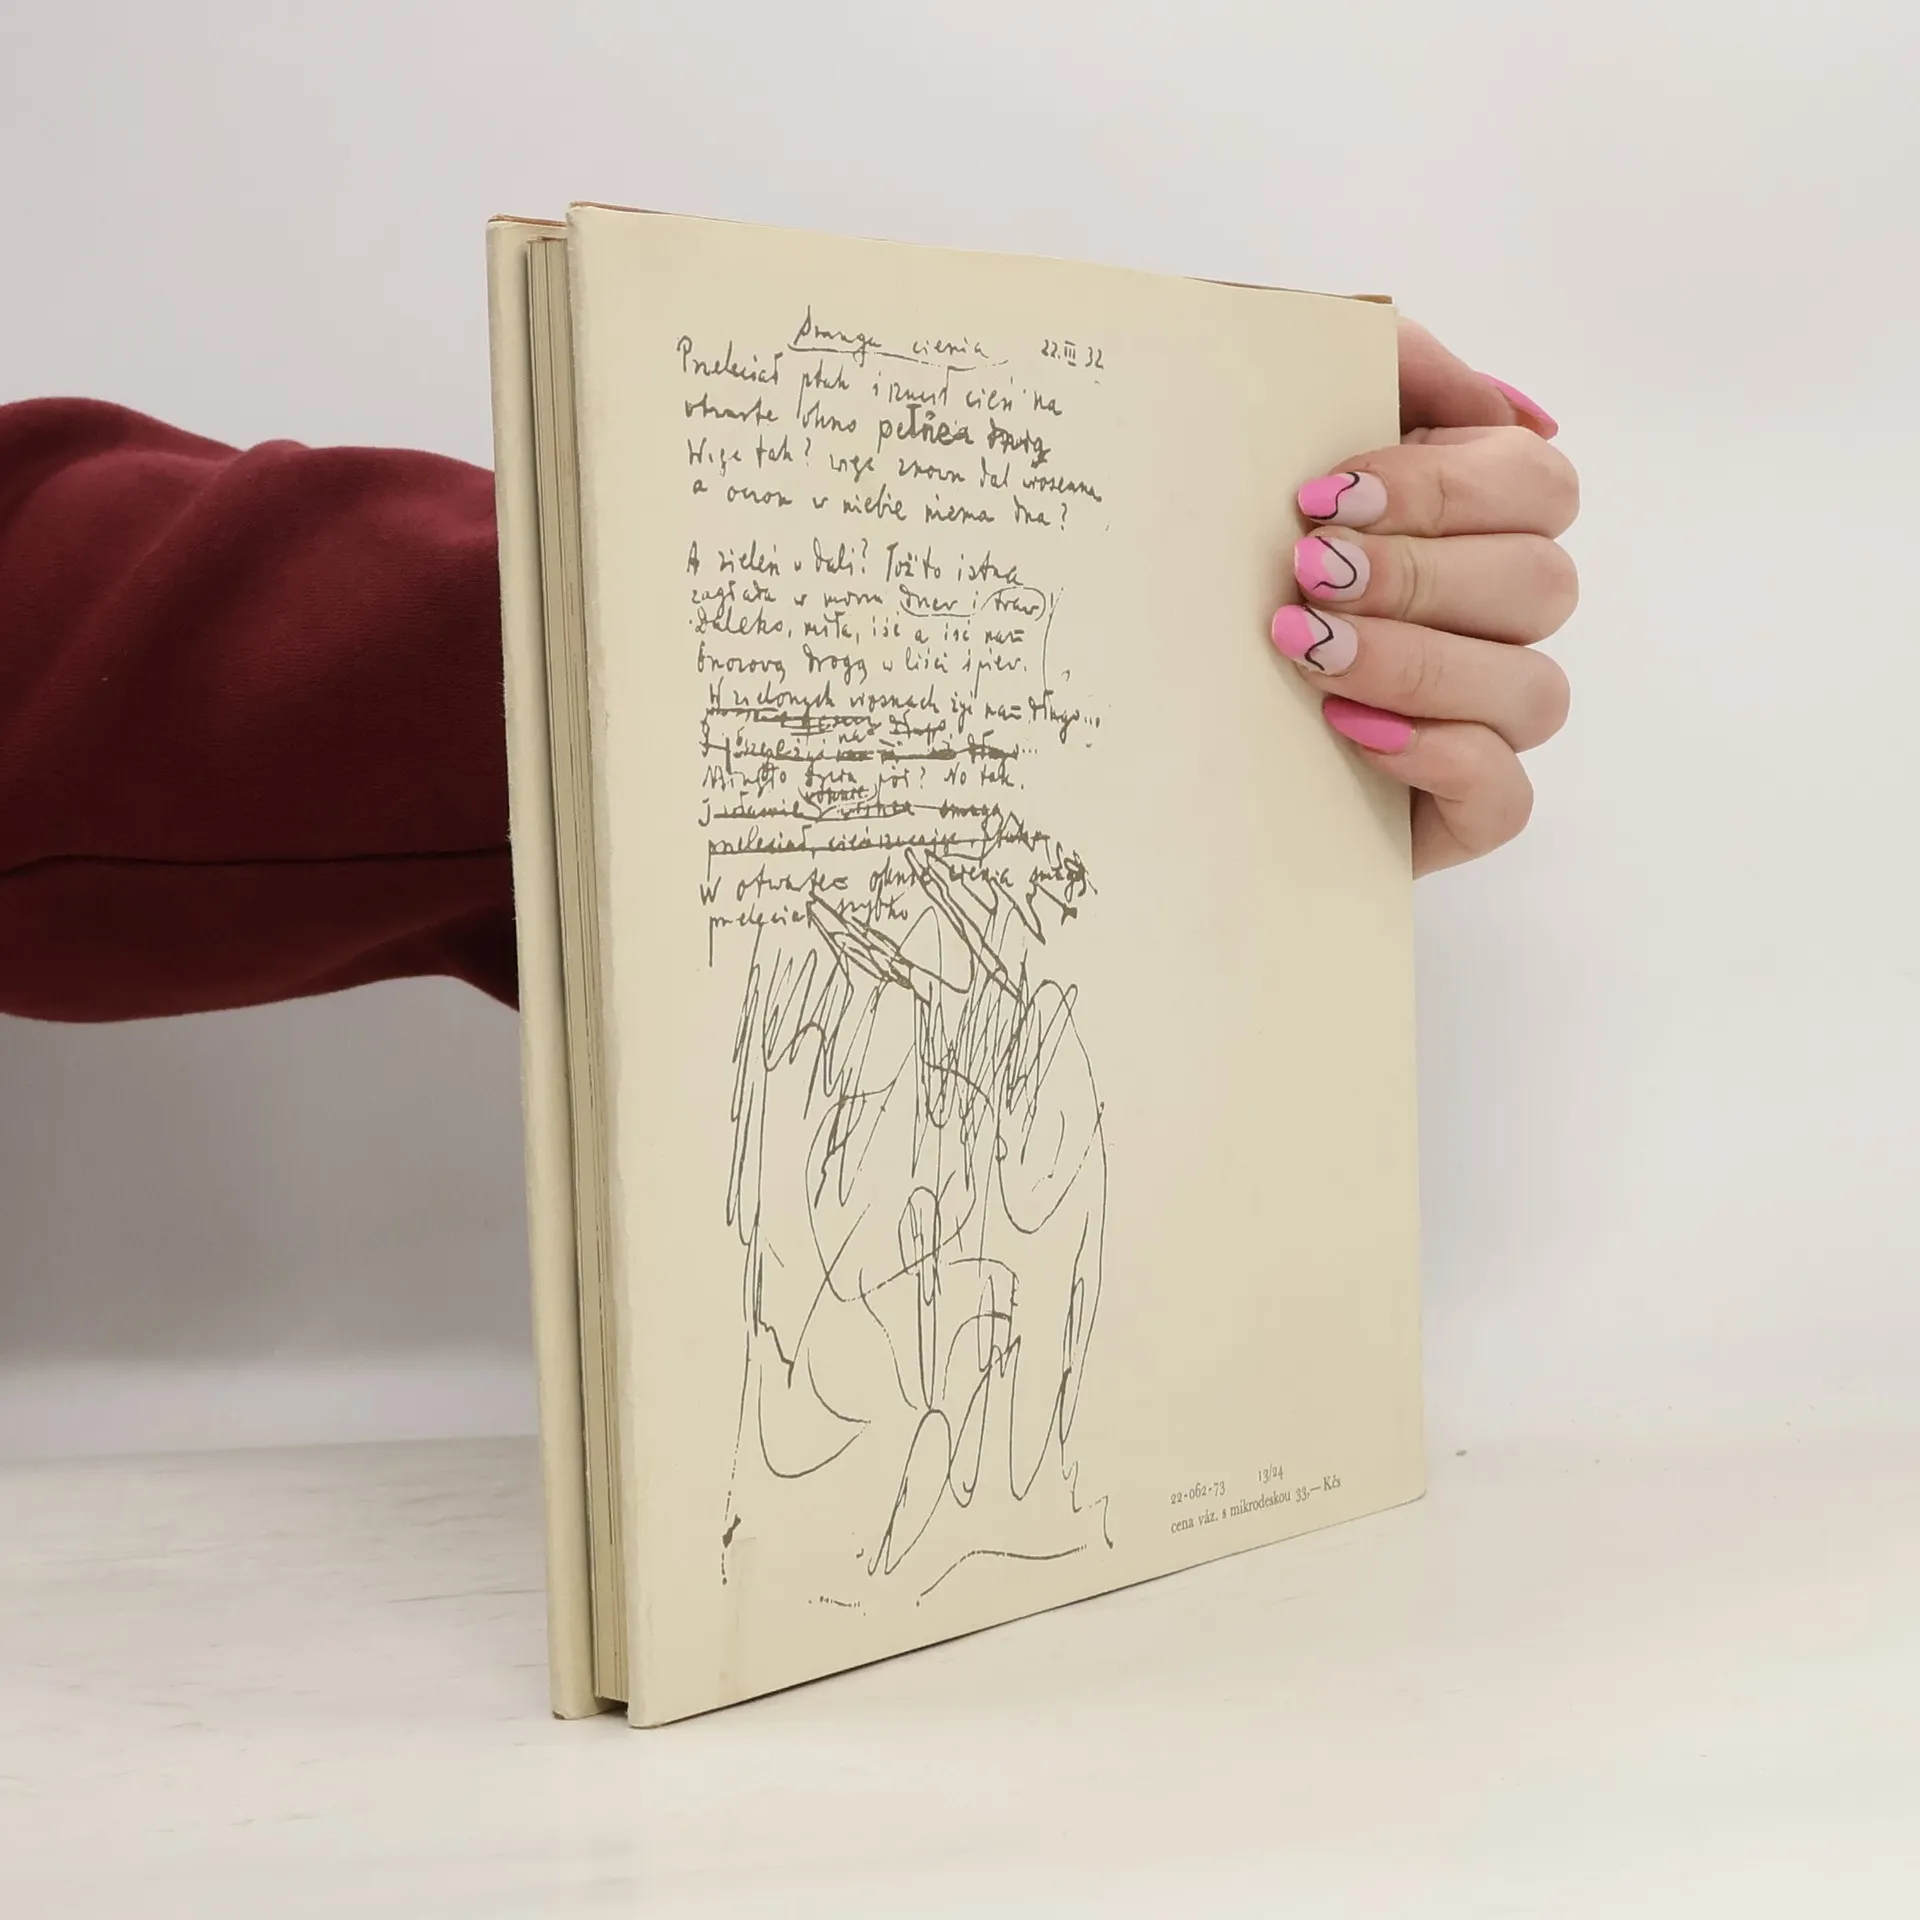 Smuga cienia 22.III 32
Przeleciał ptak i rzucił cień na
otwarte okno
Więc tak? więc znowu dal wiosenna,
a oczom w niebie niema dna?
A zieleń w dali? Toż to istna
zagłada w morzu drzew i traw
Daleko, miła, iść a iść nam
drogą w liści śpiew.
W zielonych wiosnach żyć nam długo...
Minęło życia pół? No tak.
W otwartem oknie cienia smugą
przeleciał szybko
22-062-73 13/24
cena váz. s mikrodeskou 33,— Kčs